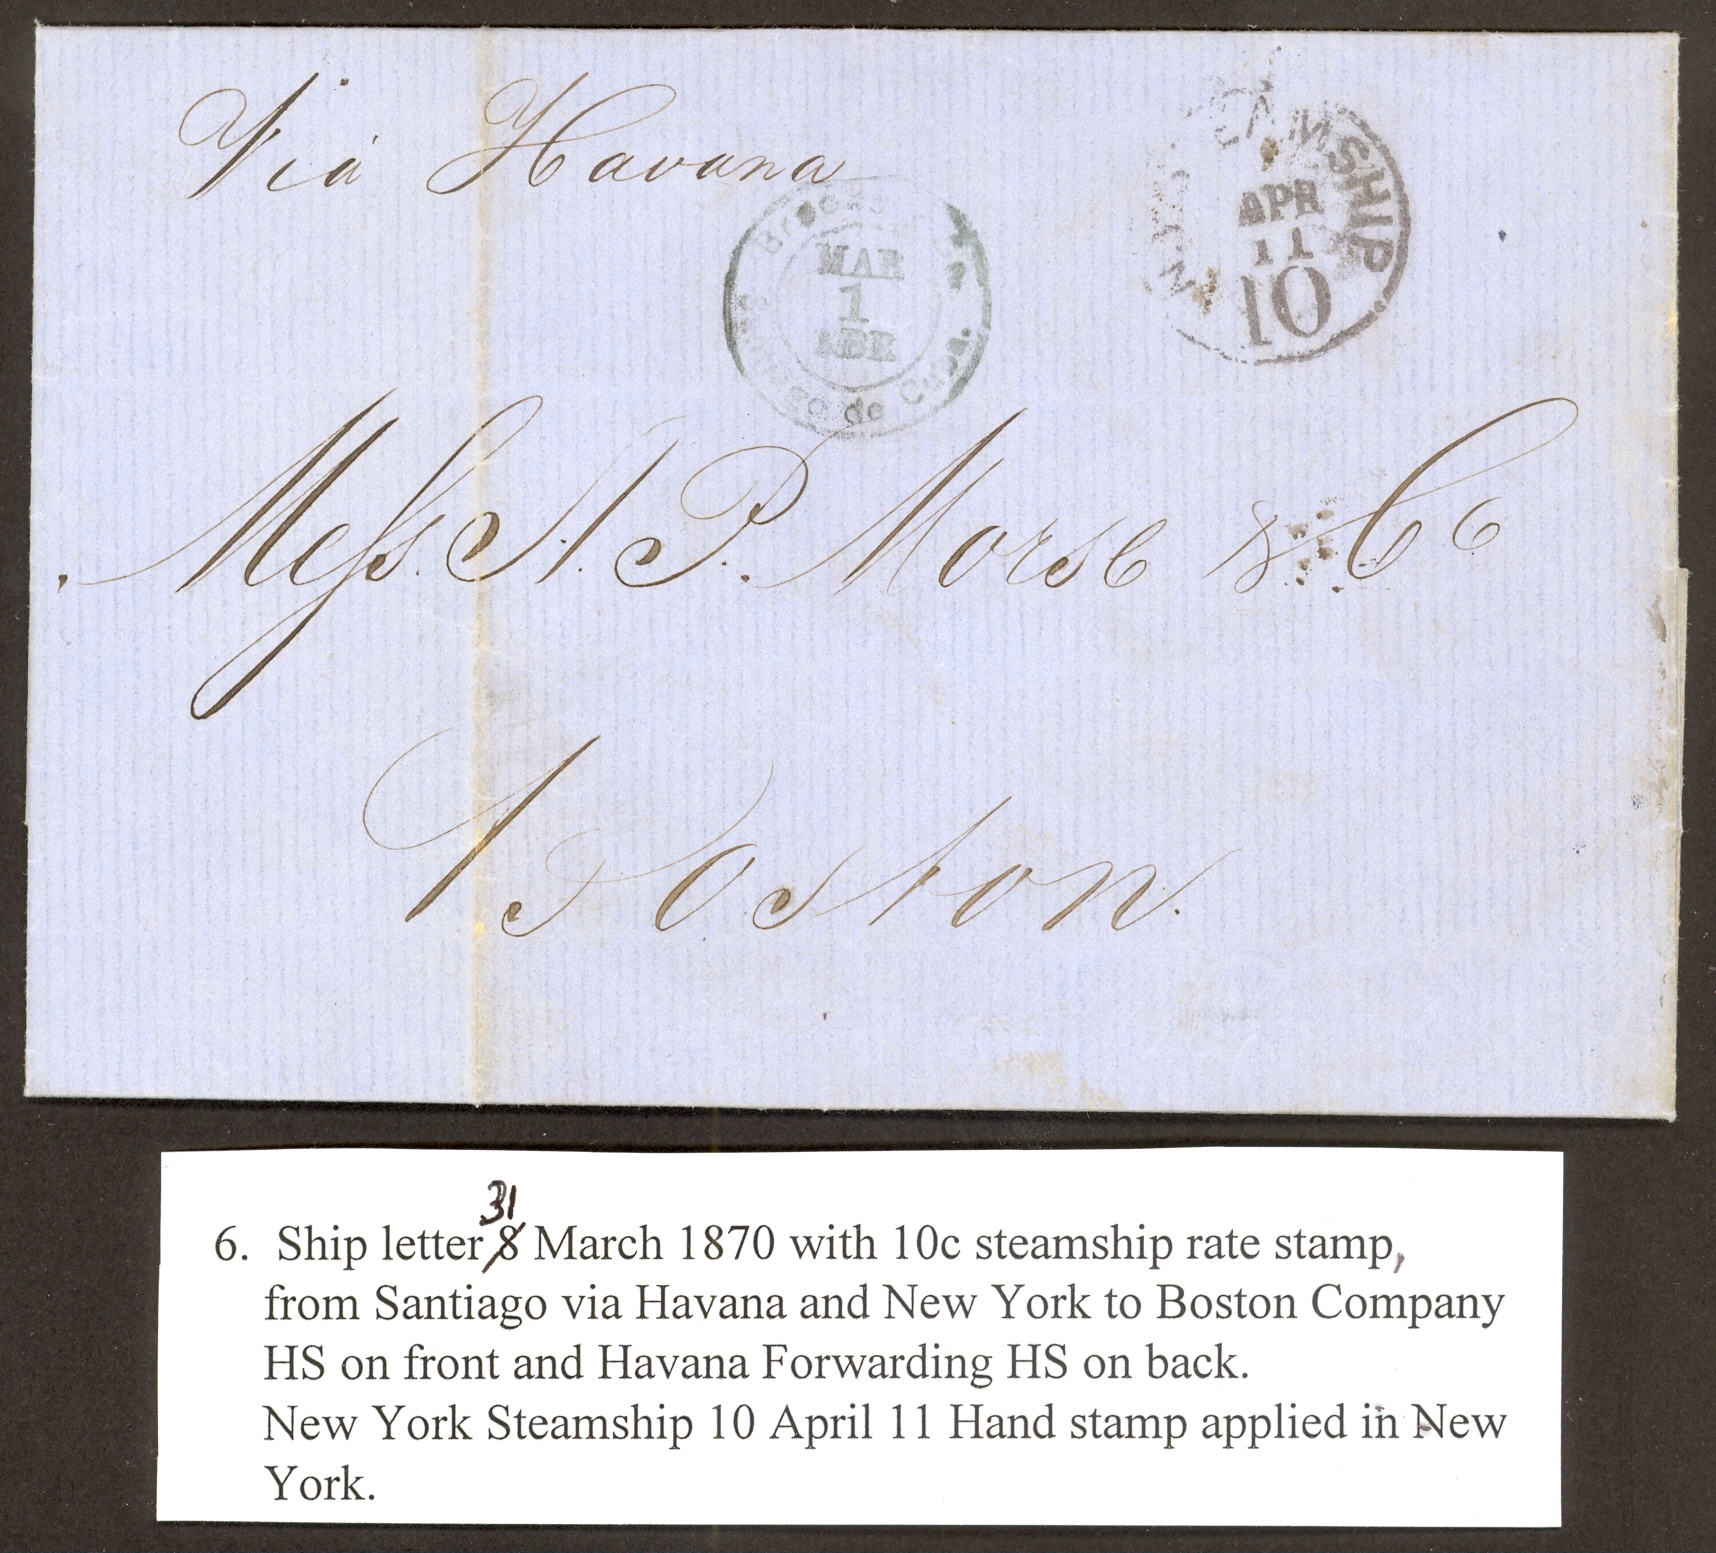 Via Havana
N.Y. STEAMSHIP
APR
11
10
MAR
1
ABR
Santiago de Cuba.
Mess. N. P. Morse & Co
Boston.
31
6. Ship letter 8 March 1870 with 10c steamship rate stamp,
from Santiago via Havana and New York to Boston Company
HS on front and Havana Forwarding HS on back.
New York Steamship 10 April 11 Hand stamp applied in New
York.